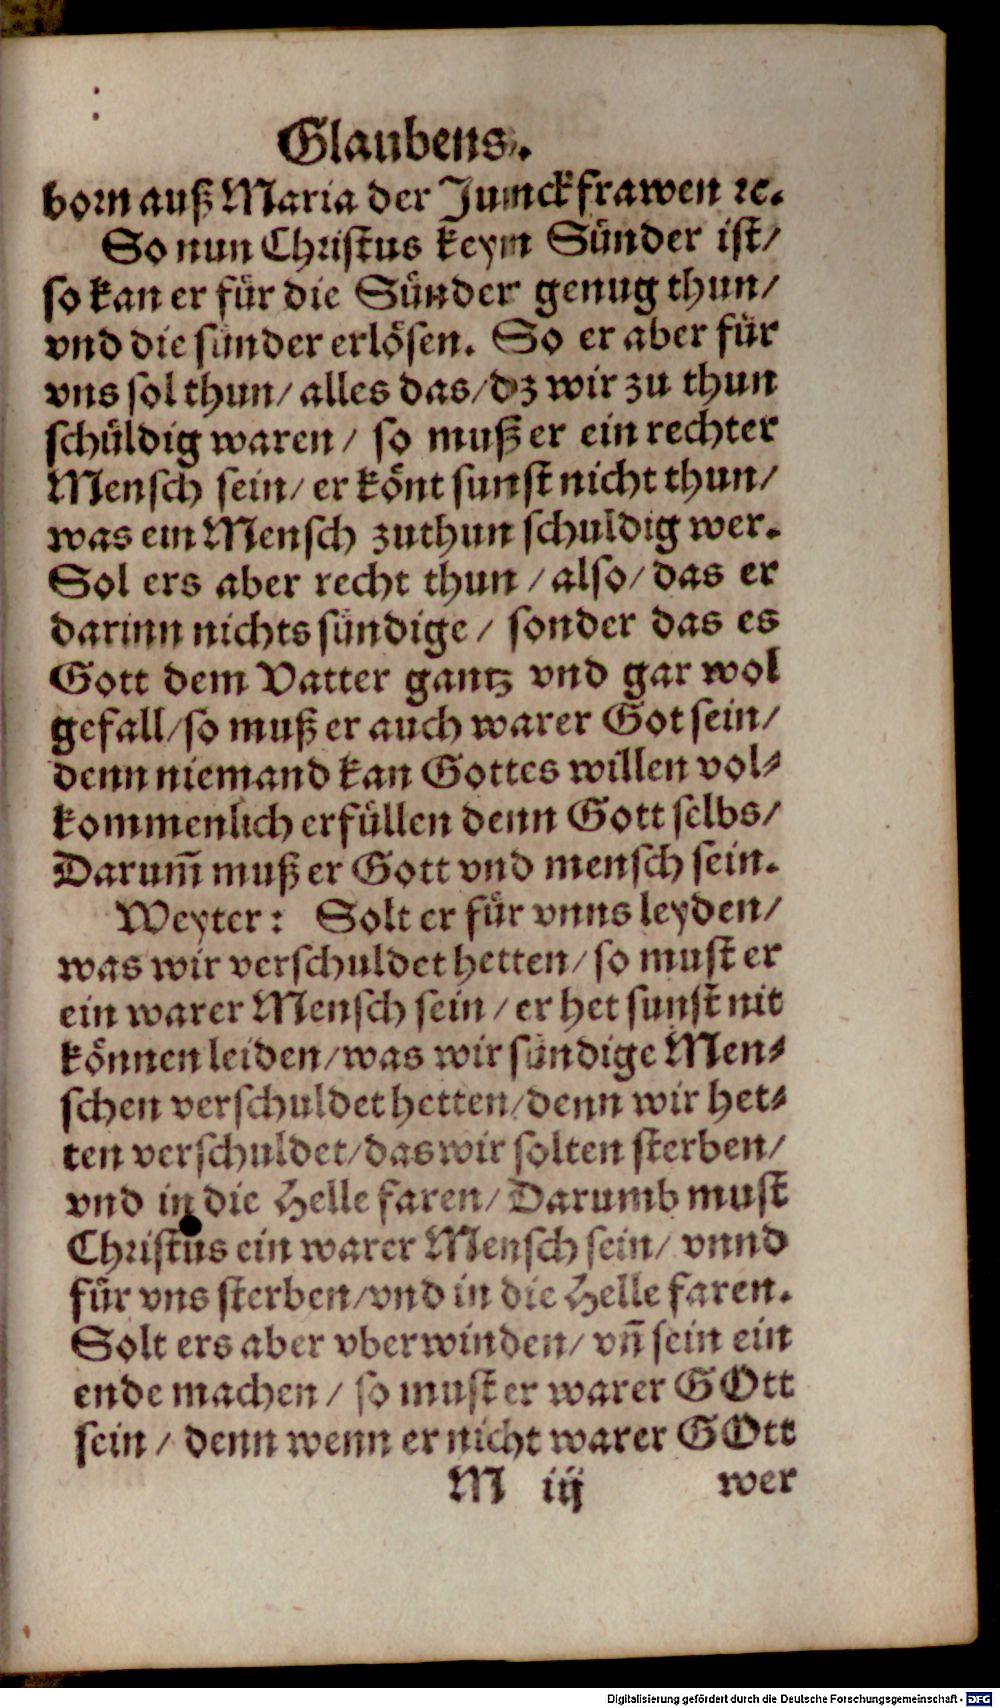 Glaubens.
born auß Maria der Junckfrawen ꝛc.
So nun Christus keyn Sünder ist/
so kan er für die Sünder genug thun/
vnd die sünder erlösen. So er aber für
vns sol thun/ alles das/ dz wir zu thun
schüldig waren/ so muß er ein rechter
Mensch sein/ er könt sunst nicht thun/
was ein Mensch zuthun schuldig wer.
Sol ers aber recht thun/ also/ das er
darinn nichts sündige/ sonder das es
Gott dem Vatter gantz vnd gar wol
gefall/ so muß er auch warer Got sein/
denn niemand kan Gottes willen vol-
kommenlich erfüllen denn Gott selbs/
Darum̃ muß er Gott vnd mensch sein.
Weyter: Solt er für vnns leyden/
was wir verschuldet hetten/ so must er
ein warer Mensch sein/ er het sunst nit
können leiden/ was wir sündige Men-
schen verschuldet hetten/ denn wir het-
ten verschuldet/ das wir solten sterben/
vnd in die Helle faren/ Darumb must
Christus ein warer Mensch sein/ vnnd
für vns sterben/ vnd in die Helle faren.
Solt ers aber vberwinden/ vn̄ sein ein
ende machen/ so must er warer GOtt
sein/ denn wenn er nicht warer GOtt
M iij wer
Digitalisierung gefördert durch die Deutsche Forschungsgemeinschaft - DFG